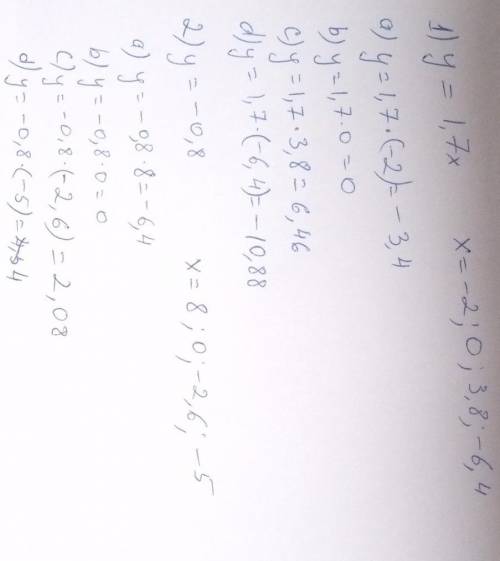 1) y = 1,7x x = -2; 0; 3,8; -6,4
a) y = 1,7·(-2) = -3,4
b) y = 1,7·0 = 0
c) y = 1,7·3,8 = 6,46
d) y = 1,7·(-6,4) = -10,88
2) y = -0,8 x = 8; 0; -2,6; -5
a) y = -0,8·8 = -6,4
b) y = -0,8·0 = 0
c) y = -0,8·(-2,6) = 2,08
d) y = -0,8·(-5) = 4